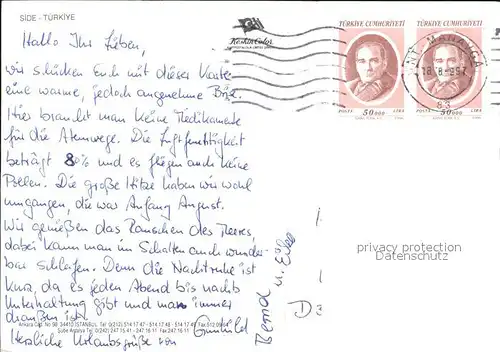 SİDE - TÜRKİYE
Hallo Ihr Lieben,
wir schicken Euch mit dieser Karte
eine warme, jedoch angenehme Brise.
Hier braucht man keine Medikamente
für die Atemwege. Die Luftfeuchtigkeit
beträgt 80% und es fliegen auch keine
Pollen. Die große Hitze haben wir wohl
umgangen, die war Anfang August.
Wir genießen das Rauschen des Meeres,
dabei kann man im Schatten auch wunder-
bar schlafen. Denn die Nachtruhe ist
kurz, da es jeden Abend bis nachts
Unterhaltung gibt und man immer
draußen ist.
Herzliche Urlaubsgrüße von
Bernd u.
Keskin Color
TÜRKİYE CUMHURİYETİ
POSTA 50 000 LİRA
TÜRKİYE CUMHURİYETİ
POSTA 50 000 LİRA
MANAVGAT
Ankara Cad. No 98 34410 İSTANBUL Tel: 0(212) 514 17 47 - 514 17 48 - 514 17 49 Fax: 512 09 64
Şube Antalya Tel: 0(242) 247 15 41 - 247 16 11 Fax: 247 16 11
D
privacy protection
Datenschutz